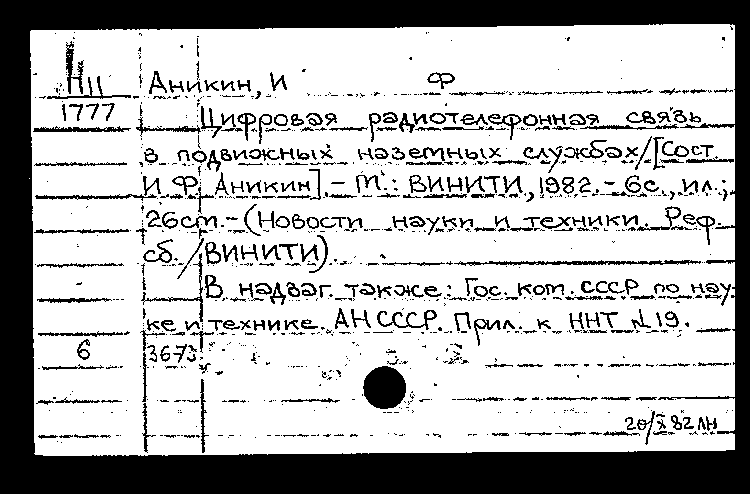 Н11 Аникин, И Ф
1777 Цифровая радиотелефонная связь
в подвижных наземных службах/[Сост.
И.Ф. Аникин]. – М.: ВИНИТИ, 1982. – 6с., ил.;
26см. – (Новости науки и техники. Реф.
сб. / ВИНИТИ).
В надзаг. также: Гос. ком. СССР по нау-
ке и технике. АН СССР. Прил. к ННТ №19.
6 3673
20/X 82 ЛН